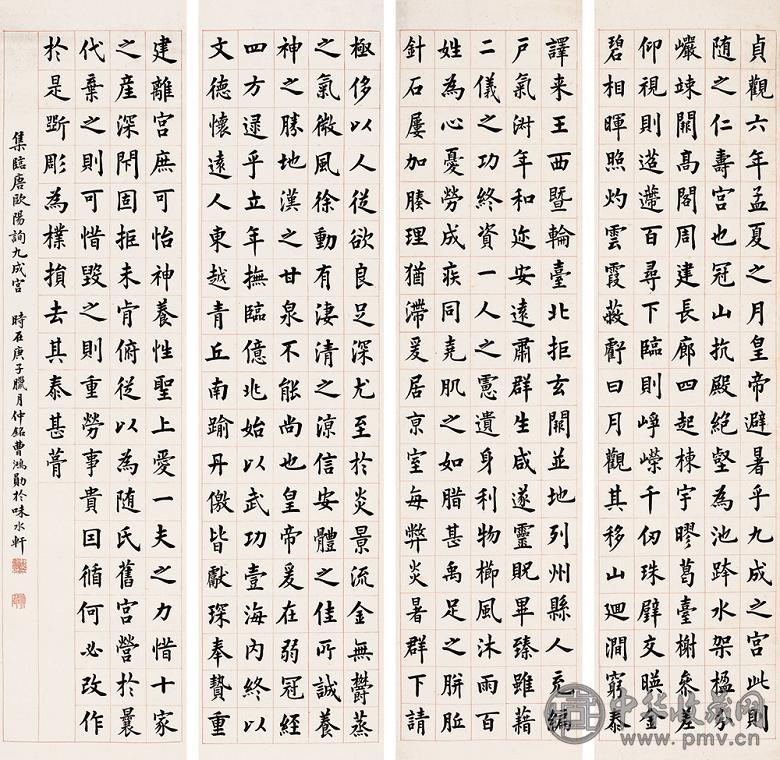 貞觀六年孟夏之月皇帝避暑乎九成之宮此則
随之仁壽宮也冠山抗殿絕壑為池跨水架楹分
巖竦闕高閣周建長廊四起棟宇膠葛臺榭參差
仰視則迢遰百尋下臨則崢嶸千仞珠璧交暎金
碧相暉照灼雲霞蔽虧日月觀其移山迴澗窮泰
譯来王西暨輪臺北拒玄闕並地列州縣人充編
戶氣淑年和迩安遠肅群生咸遂靈貺畢臻雖藉
二儀之功終資一人之慮遺身利物櫛風沐雨百
姓為心憂勞成疾同堯肌之如腊甚禹足之胼胝
針石屢加腠理猶滯爰居京室每弊炎暑群下請
極侈以人從欲良足深尤至於炎景流金無鬱蒸
之氣微風徐動有淒清之凉信安體之佳所誠養
神之勝地漢之甘泉不能尚也皇帝爰在弱冠經
四方逯乎立年撫臨億兆始以武功壹海內終以
文德懷遠人東越青丘南踰丹儌皆獻琛奉贄重
建離宮庶可怡神養性聖上愛一夫之力惜十家
之產深閇固拒未肯俯從以為随氏舊宮營於曩
代棄之則可惜毀之則重勞事貴因循何必改作
於是斲彫為樸損去其泰甚葺
集臨唐歐陽詢九成宮 時在庚子臘月仲銘曹鴻勛於味水軒
中华收藏网
www.pmv.cn